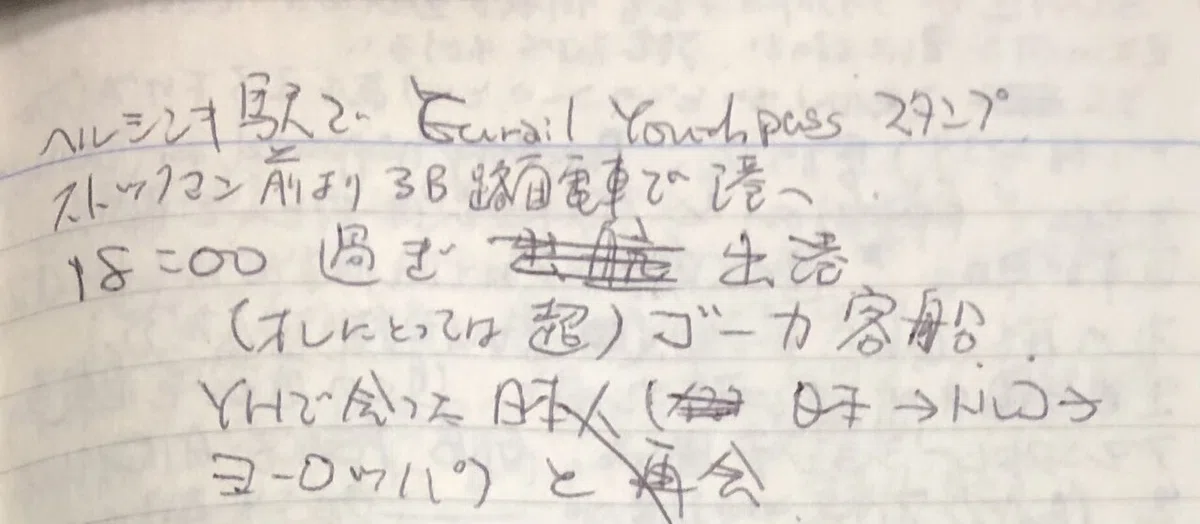 ヘルシンキ駅で Eurail Youthpass スタンプ
ストックマン前より 3B 路面電車で港へ
18:00 過ぎ 出航 出港
(オレにとっては超)ゴーカ客船
YHで会った日本人( 日本→N.W.→
ヨーロッパ)と再会